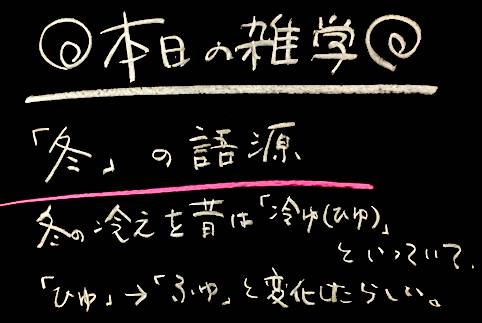 本日の雑学
「冬」の語源
冬の冷えを昔は「冷ゆ(ひゆ)」
といっていて、
「ひゆ」→「ふゆ」と変化したらしい。